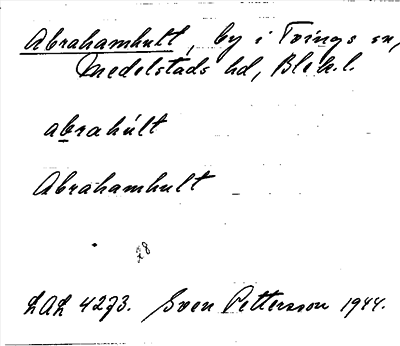 Abrahamhult, by i Tvings sn,
Medelstads hd, Blek. l.
abrahúlt
Abrahamhult
28
LAL 4273. Sven Pettersson 1944.